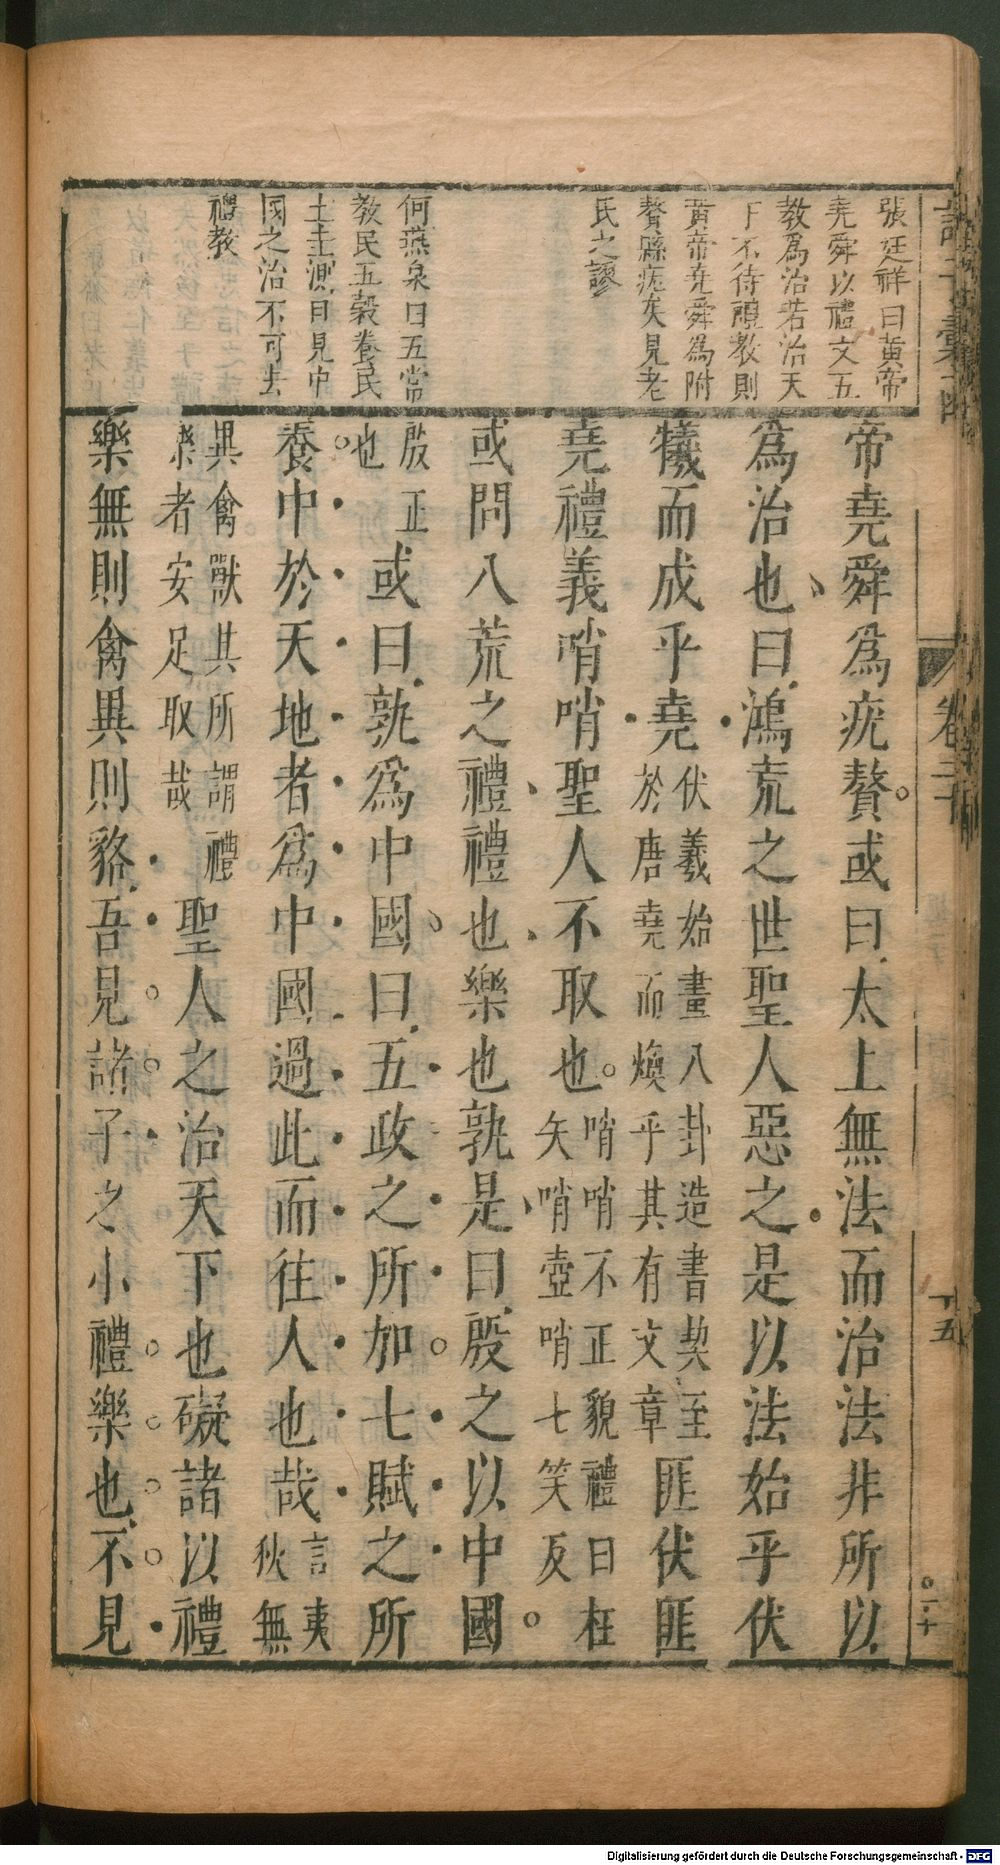 張廷祥曰黄帝
堯舜以禮文五
教為治若治天
下不待禮教則
黄帝堯舜為附
贅縣疣矣見老
氏之謬
何燕泉曰五常
教民五穀養民
土圭測日見中
國之治不可去
禮教
帝堯舜爲疣贅。或曰太上無法而治法非所以
爲治也曰鴻荒之世聖人惡之是以法始乎伏
犧而成乎堯伏羲始畫八卦造書契至於唐堯而煥乎其有文章匪伏匪
堯禮義哨哨聖人不取也。哨哨不正貌禮曰枉矢哨壺哨七笑反
或問八荒之禮禮也樂也孰是曰殷之以中國。
殷正也或曰孰爲中國曰五政之所加。七賦之所
養。中於天地者爲中國過此而往人也哉言夷狄無
異禽獸其所謂禮樂者安足取哉聖人之治天下也礙諸以禮
樂無則禽異則貉吾見諸子之小禮樂也不見
卷二十
十五
Digitalisierung gefördert durch die Deutsche Forschungsgemeinschaft - DFG